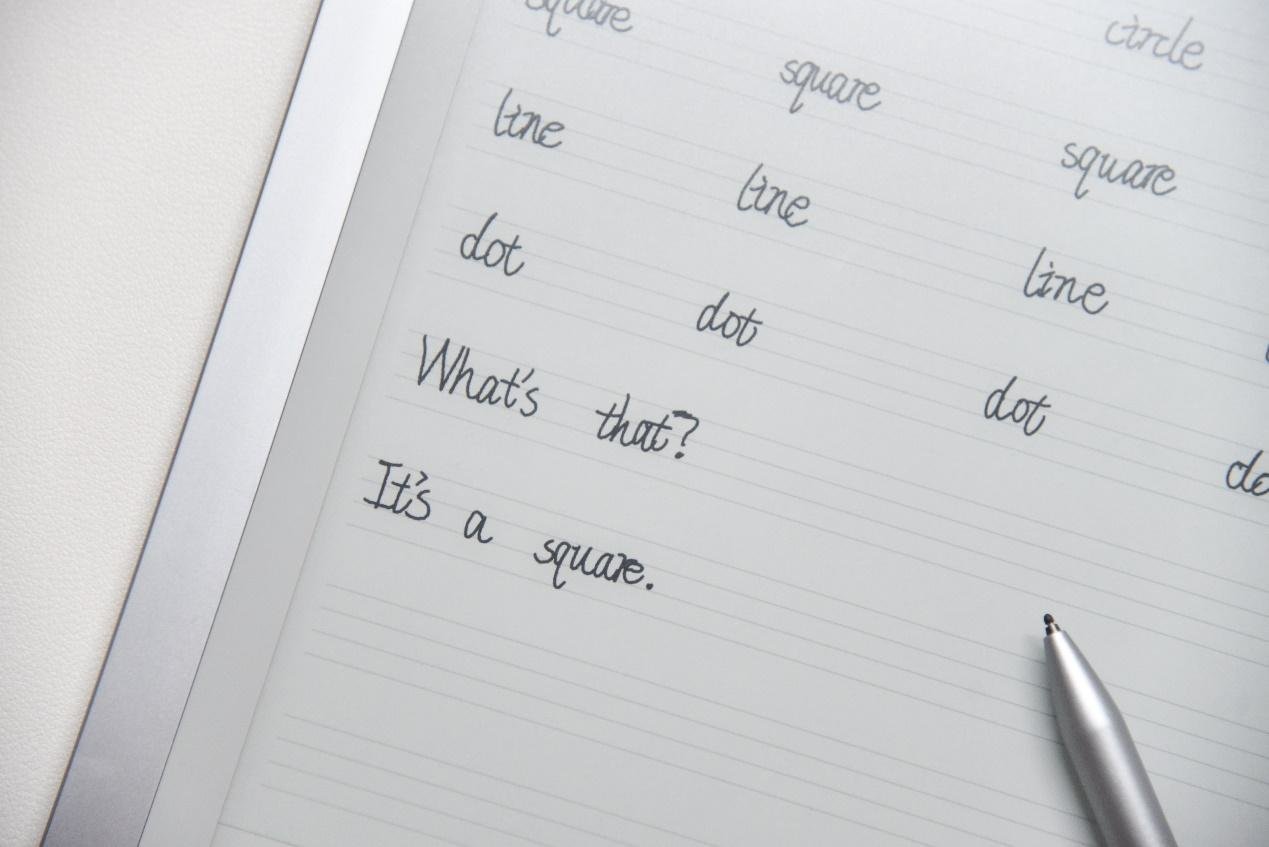 circle
square square square
line line line
dot dot dot
What's that?
It's a square.